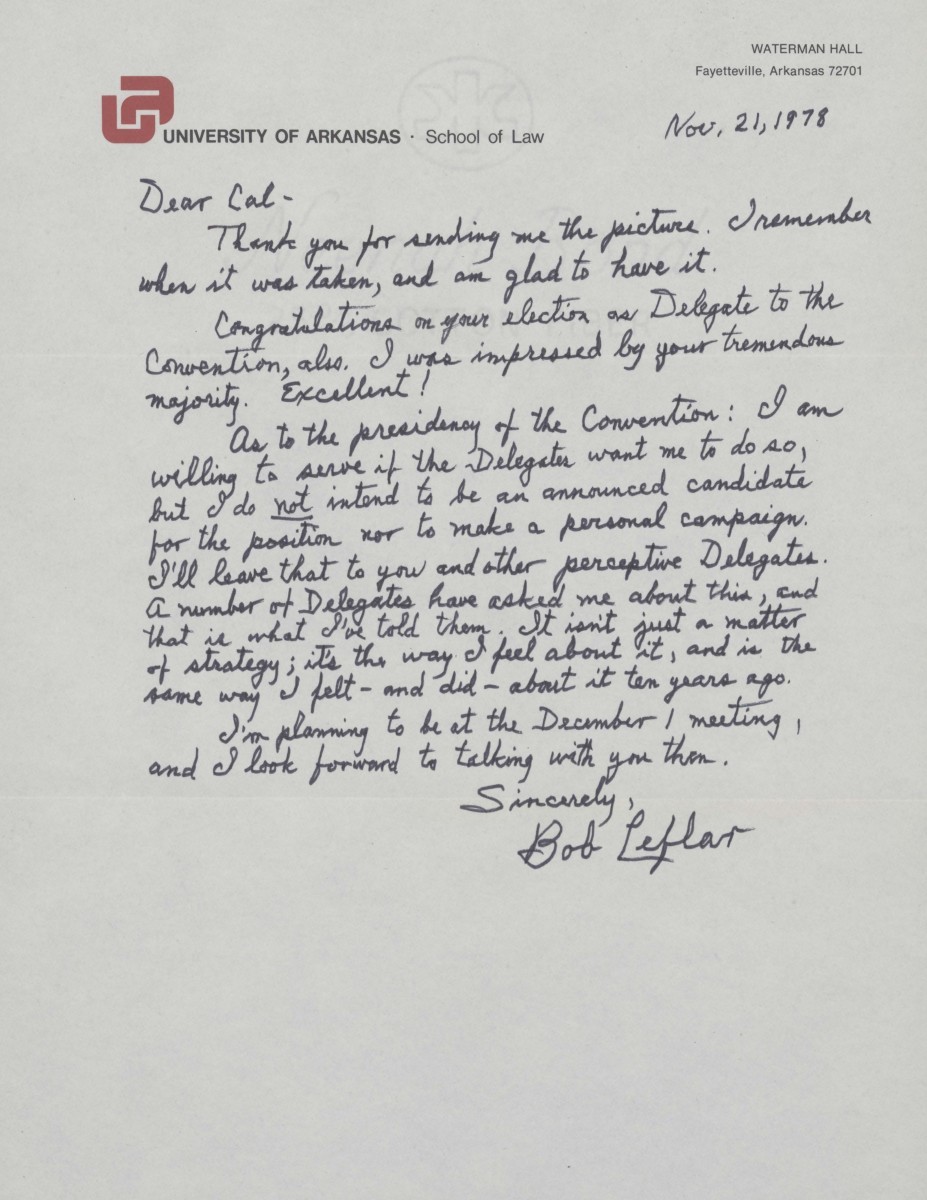 WATERMAN HALL
Fayetteville, Arkansas 72701
UNIVERSITY OF ARKANSAS · School of Law
Nov, 21, 1978
Dear Cal -
Thank you for sending me the picture. I remember
when it was taken, and am glad to have it.
Congratulations on your election as Delegate to the
Convention, also. I was impressed by your tremendous
majority. Excellent!
As to the presidency of the Convention: I am
willing to serve if the Delegates want me to do so,
but I do not intend to be an announced candidate
for the position nor to make a personal campaign.
I'll leave that to you and other perceptive Delegates.
A number of Delegates have asked me about this, and
that is what I've told them. It isn't just a matter
of strategy; it's the way I feel about it, and is the
same way I felt - and did - about it ten years ago.
I'm planning to be at the December 1 meeting,
and I look forward to talking with you then.
Sincerely,
Bob Leflar